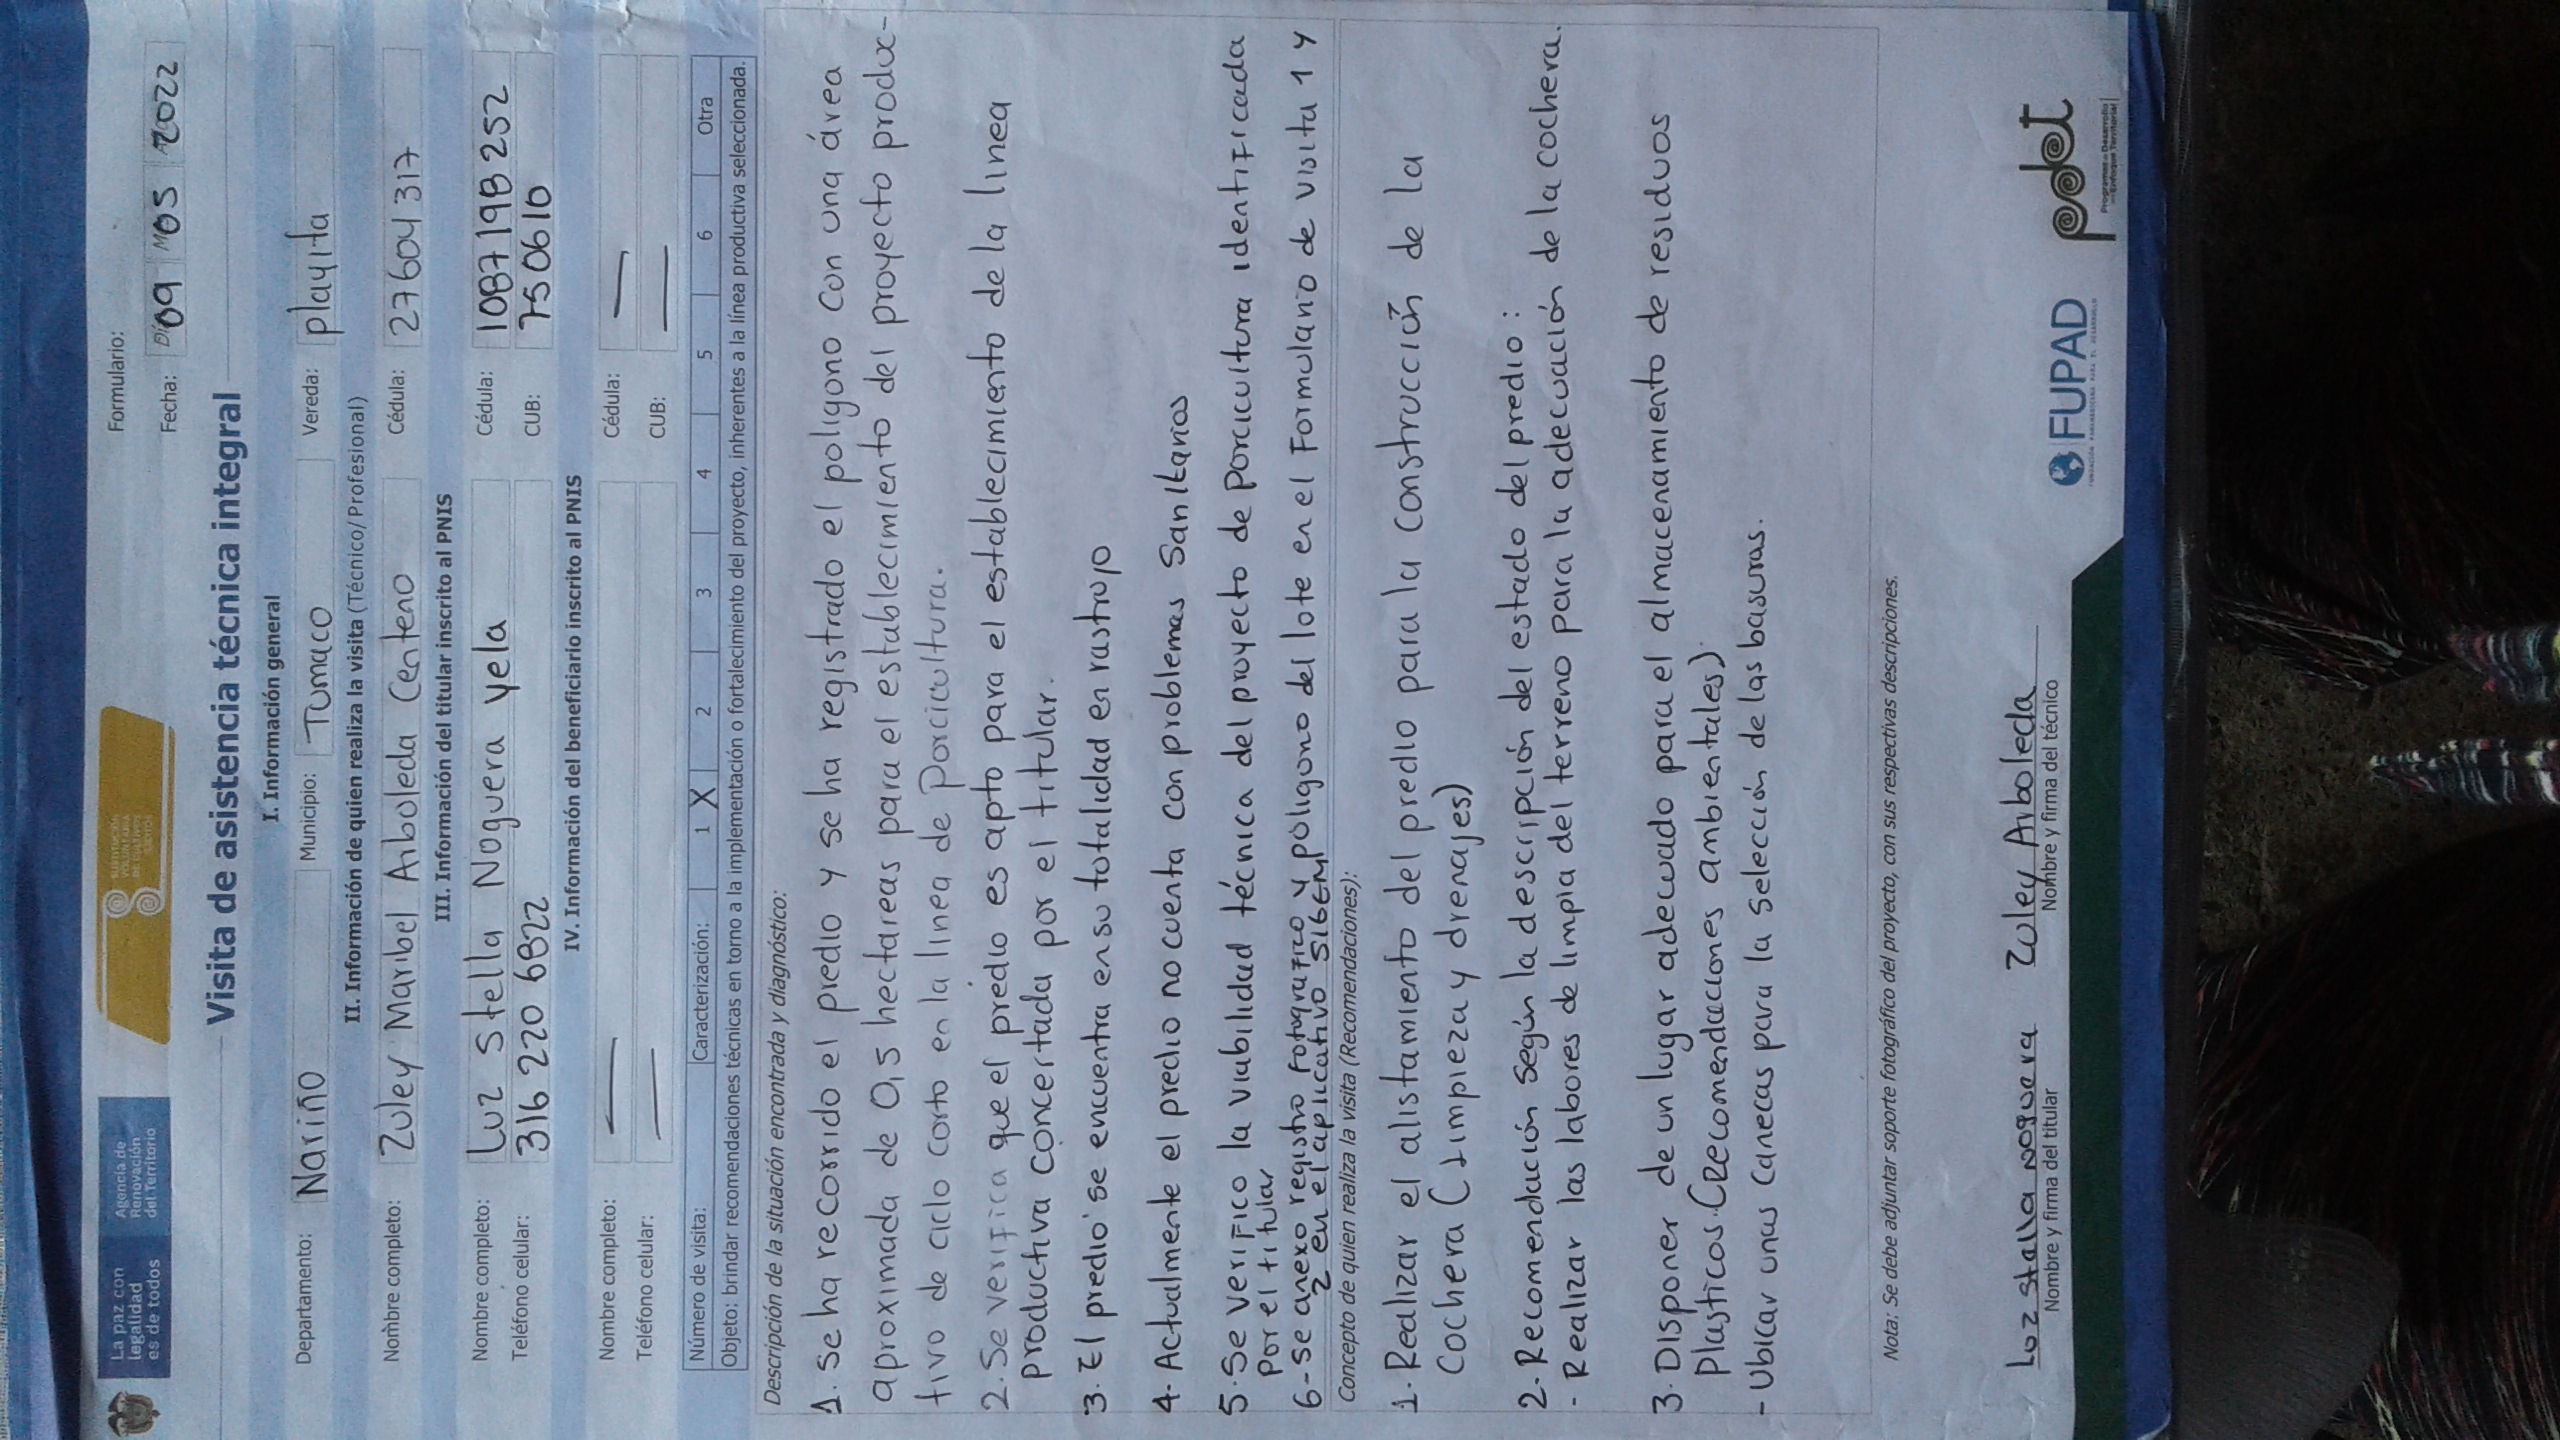 La paz con
legalidad
es de todos
Agencia de
Renovación
del Territorio
SUSTITUCIÓN
VOLUNTARIA
DE CULTIVOS
ILÍCITOS
Formulario:
Fecha: 09 05 2022
Visita de asistencia técnica integral
I. Información general
Departamento: Nariño Municipio: Tumaco Vereda: playita
II. Información de quien realiza la visita (Técnico/ Profesional)
Nombre completo: Zuley Maribel Arboleda Centeno Cédula: 27604317
III. Información del titular inscrito al PNIS
Nombre completo: Luz Stella Noguera yela Cédula: 1087198252
Teléfono celular: 316 220 6822 CUB: 750610
IV. Información del beneficiario inscrito al PNIS
Nombre completo: — Cédula: —
Teléfono celular: — CUB: —
Número de visita: Caracterización: 1 X 2 3 4 5 6 Otra
Objeto: brindar recomendaciones técnicas en torno a la implementación o fortalecimiento del proyecto, inherentes a la línea productiva seleccionada.
Descripción de la situación encontrada y diagnóstico:
1. se ha recorrido el predio y se ha registrado el poligono con una área
aproximada de 0,5 hectareas para el establecimiento del proyecto produc-
tivo de ciclo corto en la linea de Porcicultura.
2. Se verifica que el predio es apto para el establecimiento de la linea
productiva concertada por el titular.
3. El predio se encuentra en su totalidad en rastrojo
4. Actualmente el predio no cuenta con problemas Sanitarios
5. Se verifico la viabilidad técnica del proyecto de Porcicultura identificada
por el titular
6- se anexo registro fotografico y poligono del lote en el Formulario de visita 1 y
2 en el aplicativo SIGEM
Concepto de quien realiza la visita (Recomendaciones):
1. Realizar el alistamiento del predio para la construcción de la
cochera (Limpieza y drenajes)
2- Recomendación según la descripción del estado del predio:
- Realizar las labores de limpia del terreno para la adecuación de la cochera.
3. Disponer de un lugar adecuado para el almacenamiento de residuos
Plasticos. (Recomendaciones ambientales).
- Ubicar unas canecas para la selección de las basuras.
Nota: Se debe adjuntar soporte fotográfico del proyecto, con sus respectivas descripciones.
Luz stella noguera Zuley Arboleda
Nombre y firma del titular Nombre y firma del técnico
FUPAD
FUNDACIÓN PANAMERICANA PARA EL DESARROLLO
pdet
Programas de Desarrollo
con Enfoque Territorial